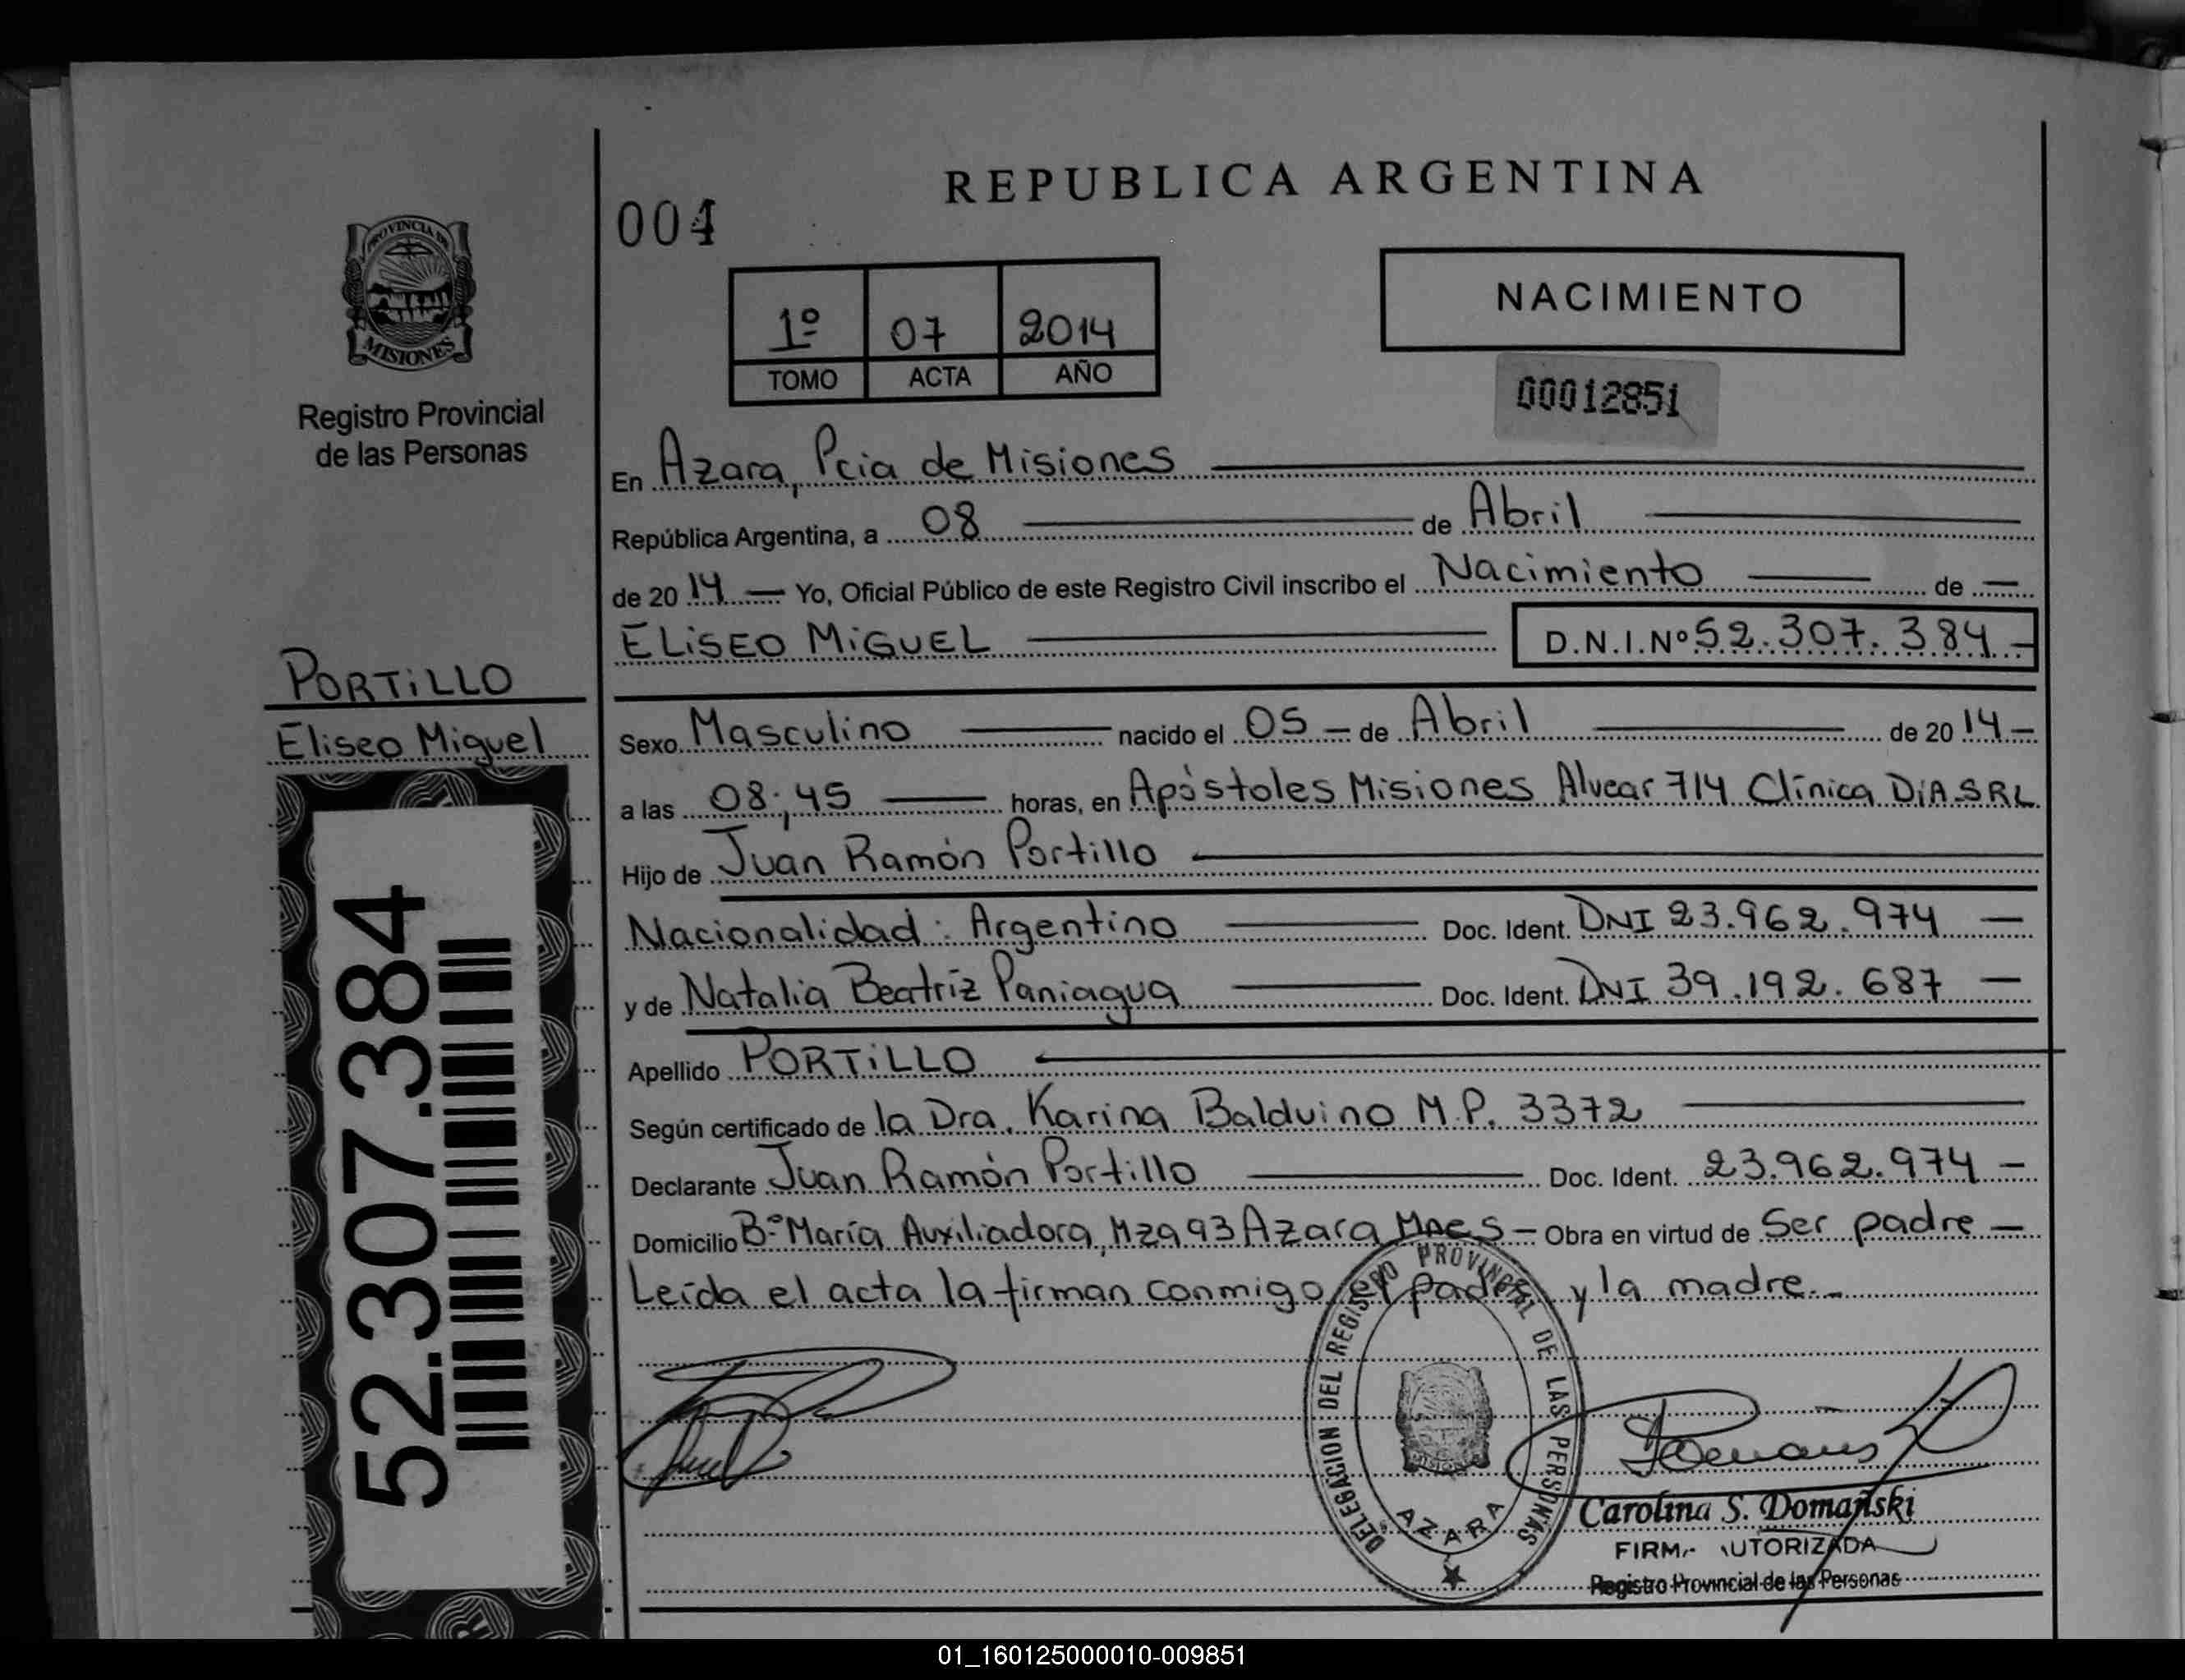 REPUBLICA ARGENTINA
004
PROVINCIA DE
MISIONES
Registro Provincial
de las Personas
1º 07 2014
TOMO ACTA AÑO
NACIMIENTO
00012851
En Azara, Pcia de Misiones
República Argentina, a 08 de Abril
de 20 14 — Yo, Oficial Público de este Registro Civil inscribo el Nacimiento de —
ELiSEO MiGUEL D.N.I.Nº 52.307.384 -
PORTiLLO
Eliseo Miguel
52.307.384
Sexo Masculino nacido el 05 — de Abril de 20 14 —
a las 08;45 horas, en Apóstoles Misiones Alvear 714 Clínica DiA SRL
Hijo de Juan Ramón Portillo
Nacionalidad: Argentino Doc. Ident. DNI 23.962.974 —
y de Natalia Beatriz Paniagua Doc. Ident. DNI 39.192.687 —
Apellido PORTiLLO
Según certificado de la Dra. Karina Balduino M.P. 3372
Declarante Juan Ramón Portillo Doc. Ident. 23.962.974 —
Domicilio Bº María Auxiliadora, Mza 93 Azara Mnes — Obra en virtud de Ser padre —
Leída el acta la firman conmigo el padre y la madre.-
DELEGACION DEL REGISTRO PROVINCIAL DE LAS PERSONAS
AZARA
Carolina S. Domañski
FIRMA AUTORIZADA
Registro Provincial de las Personas
01_160125000010-009851